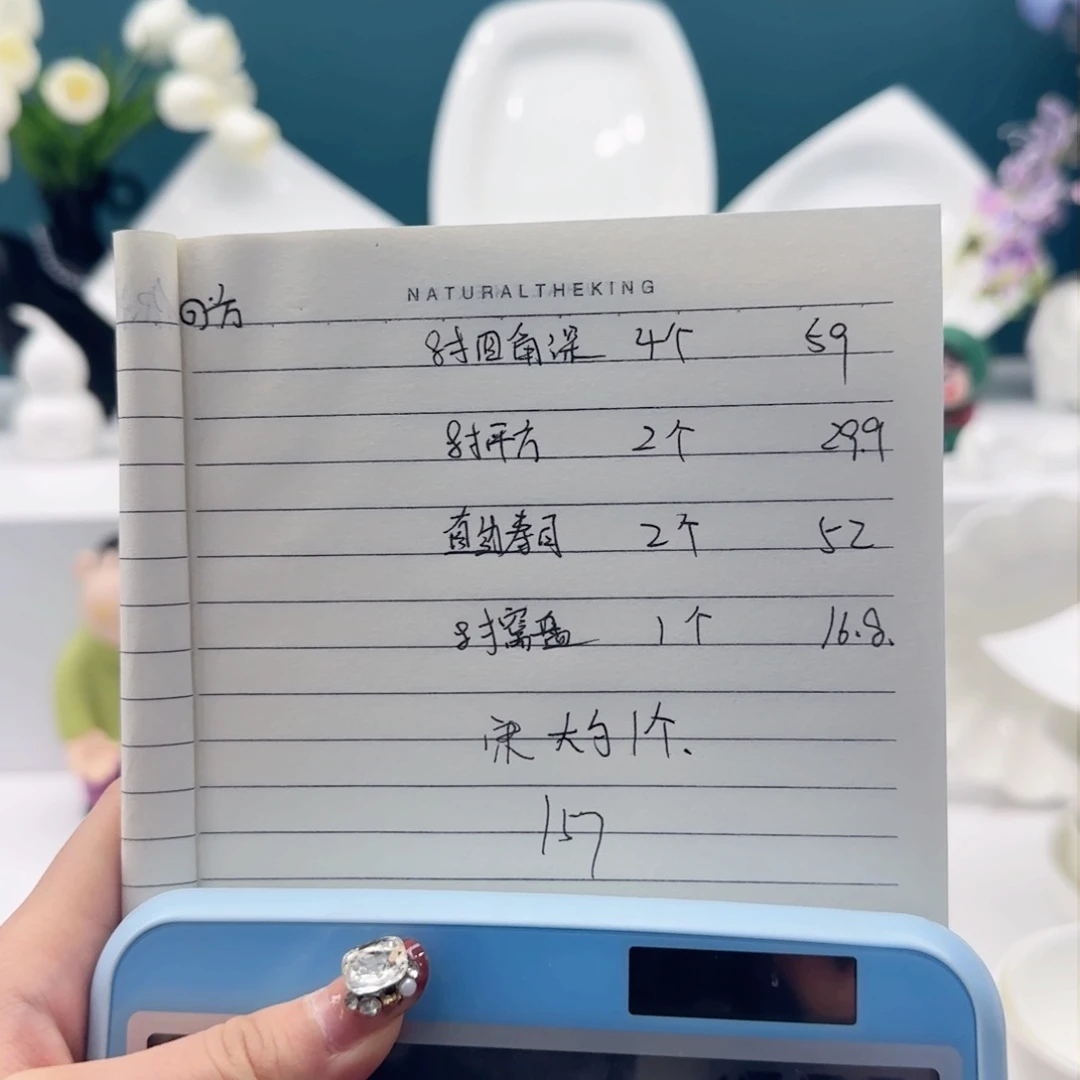 NATURALTHEKING
8寸圆角深 4个 59
8寸平方 2个 29.9
直角寿司 2个 52
8寸窝盘 1个 16.8.
送大勺1个.
157